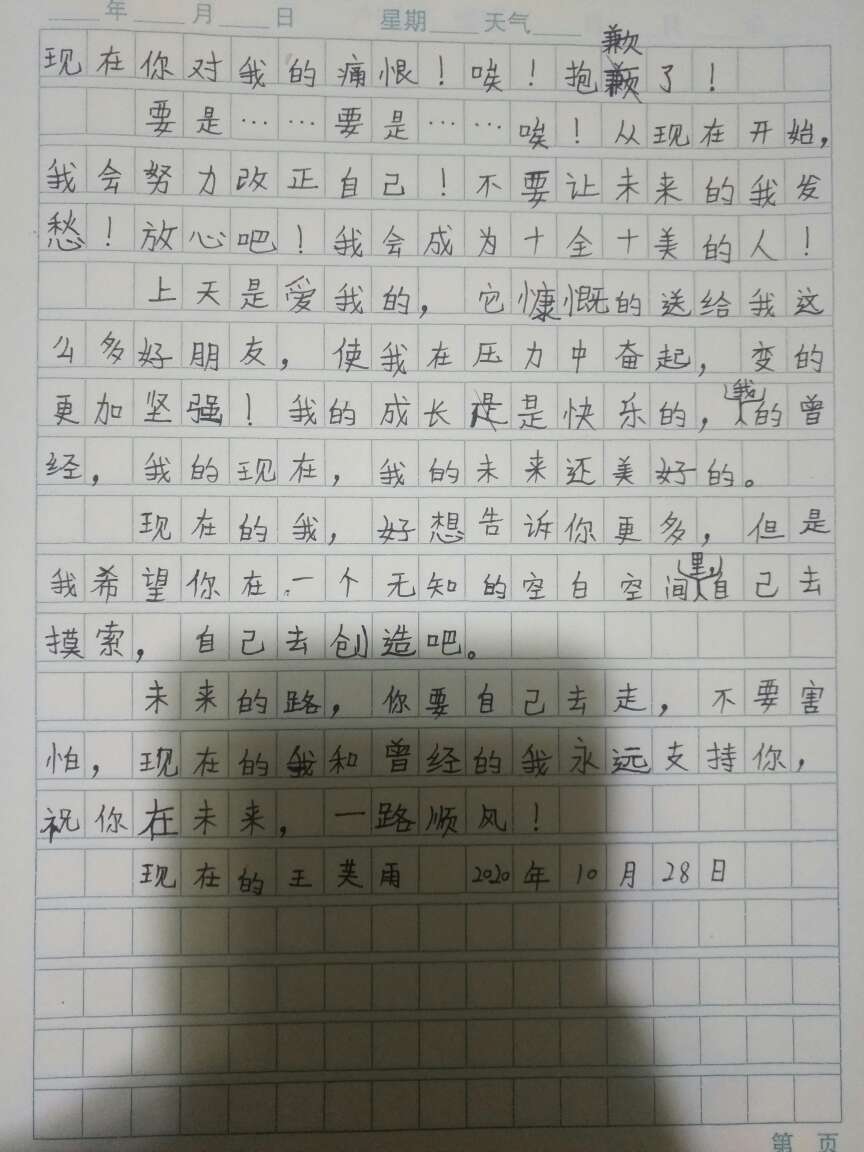 年 月 日 星期 天气
现在你对我的痛恨！唉！抱歉了！
要是……要是……唉！从现在开始，
我会努力改正自己！不要让未来的我发
愁！放心吧！我会成为十全十美的人！
上天是爱我的，它慷慨的送给我这
么多好朋友，使我在压力中奋起，变的
更加坚强！我的成长是快乐的，我的曾
经，我的现在，我的未来还美好的。
现在的我，好想告诉你更多，但是
我希望你在一个无知的空白空间里，自己去
摸索，自己去创造吧。
未来的路，你要自己去走，不要害
怕，现在的我和曾经的我永远支持你，
祝你在未来，一路顺风！
现在的王芙雨 2020年10月28日
第 页